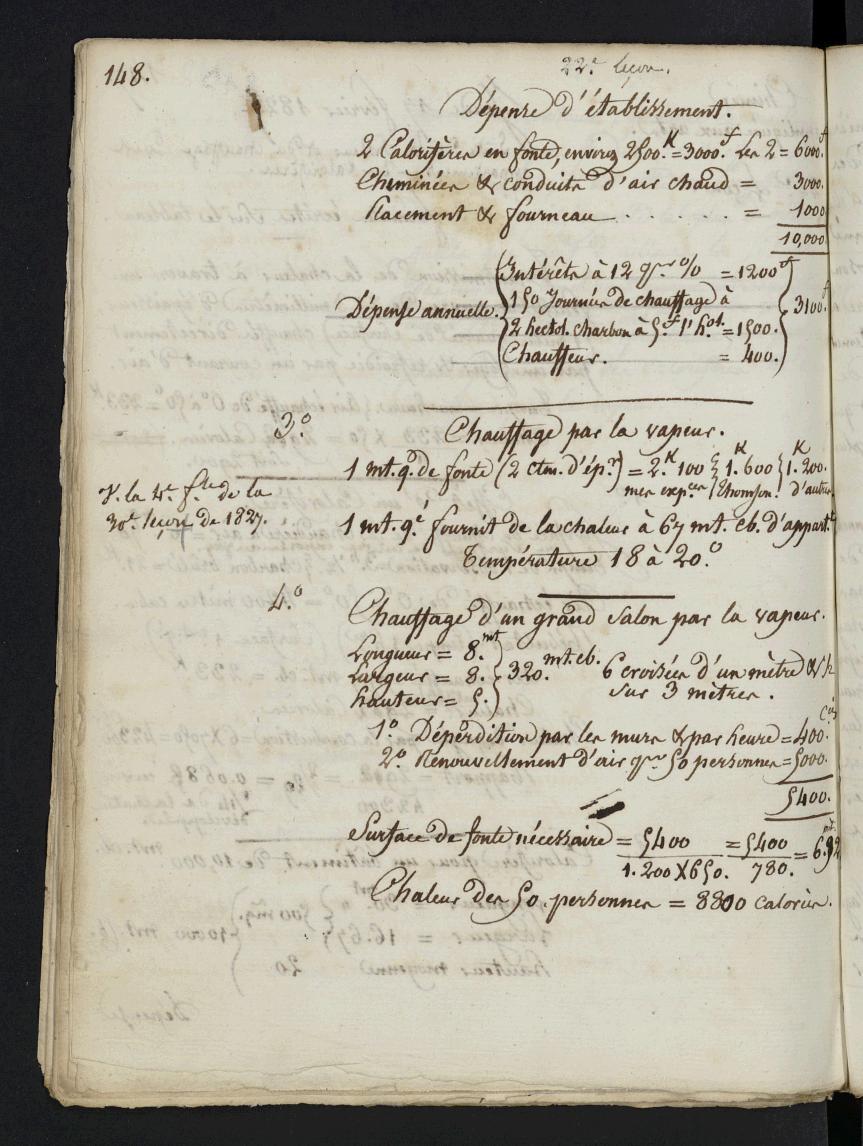 148.
22.e leçon.
Dépense d'établissement.
2 Calorifères en fonte, environ 2500.K = 3000.f Les 2 = 6000.f
Cheminées & conduits d'air chaud = 3000.
Placement & fourneau . . . . . . = 1000
10,000
Dépense annuelle.
Intérêts à 12 pr % = 1200f
150 Journées de chauffage à
2 hectol. charbon à 5.f l'h.ot. = 1500.
Chauffeur. = 400.
3100.f
3.o
Chauffage par la vapeur.
1 mt. q. de fonte (2 ctm. d'ép.r) = 2.K 100 1.K 600 1.K 200.
mes exp.ces Thomson. d'autres
V. la 4.e f.lle de la
30.e leçon de 1827.
1 mt. q.é fournit de la chaleur à 67 mt. cb. d'appart.t
Température 18 à 20.o
4.o
Chauffage d'un grand salon par la vapeur.
Longueur = 8.mt
Largeur = 8.
hauteur = 5.
320.mt.cb.
6 croisées d'un mètre &
sur 3 mètres.
1.o Dépérdition par les murs & par heure = 400.
2.o Renouvellement d'air pr 50 personnes = 5000.
5400.
Surface de fonte nécessaire = 5400 / 1.200 X 650. = 5400 / 780. = 6.92
Chaleur des 50 personnes = 8800 calories.